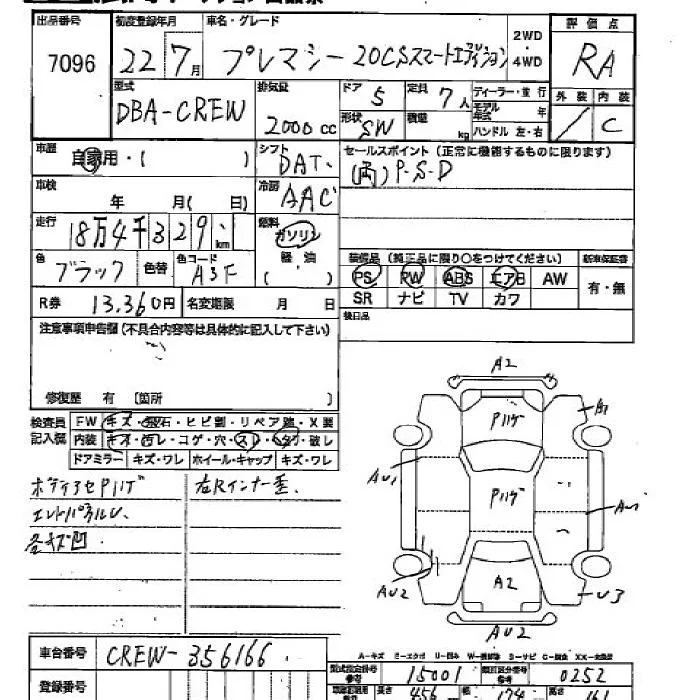 出品番号 初度登録年月 車名・グレード 2WD 評価点
7096 22 7月 プレマシー 20CSスマートエディション ・4WD RA
型式 排気量 ドア 5 定員 7人 ディーラー・並行 外装 内装
DBA-CREW 2000cc 形状 SW 積載 kg モデル年式 年 / C
ハンドル 左・右
車歴 自家用・( ) シフト DAT、 セールスポイント (正常に機能するものに限ります)
(両) P・S・D
車検 年 月( 日) 冷房 AAC
走行 18万4千329 km 燃料 ガソリン
色 ブラック 色替 色コード A3F 軽油 ( ) 装備品 (純正品に限り〇をつけてください) 新車保証書
PS PW ABS エアB AW 有・無
R券 13,360円 名変期限 月 日 SR ナビ TV カワ
注意事項申告欄 (不具合内容等は具体的に記入して下さい) 後日品
修復歴 有 〔箇所 〕
検査員 FW キズ・飛石・ヒビ割・リペア跡・X要
記入欄 内装 キズ・汚レ・コゲ・穴・スレ・破レ
ドアミラー キズ・ワレ ホイール・キャップ キズ・ワレ
ボディアセPハゲ 右Rインナー歪、
エンドパネルU、
各キズ凹
A2
Pハゲ
A1
AU1
Pハゲ
AU1
AU2 A2 U3
AU2
車台番号 CREW-356166
A-キズ
型式指定番号 15001 類別区分番号 0252
登録番号 長さ 456 幅 174 高さ 161